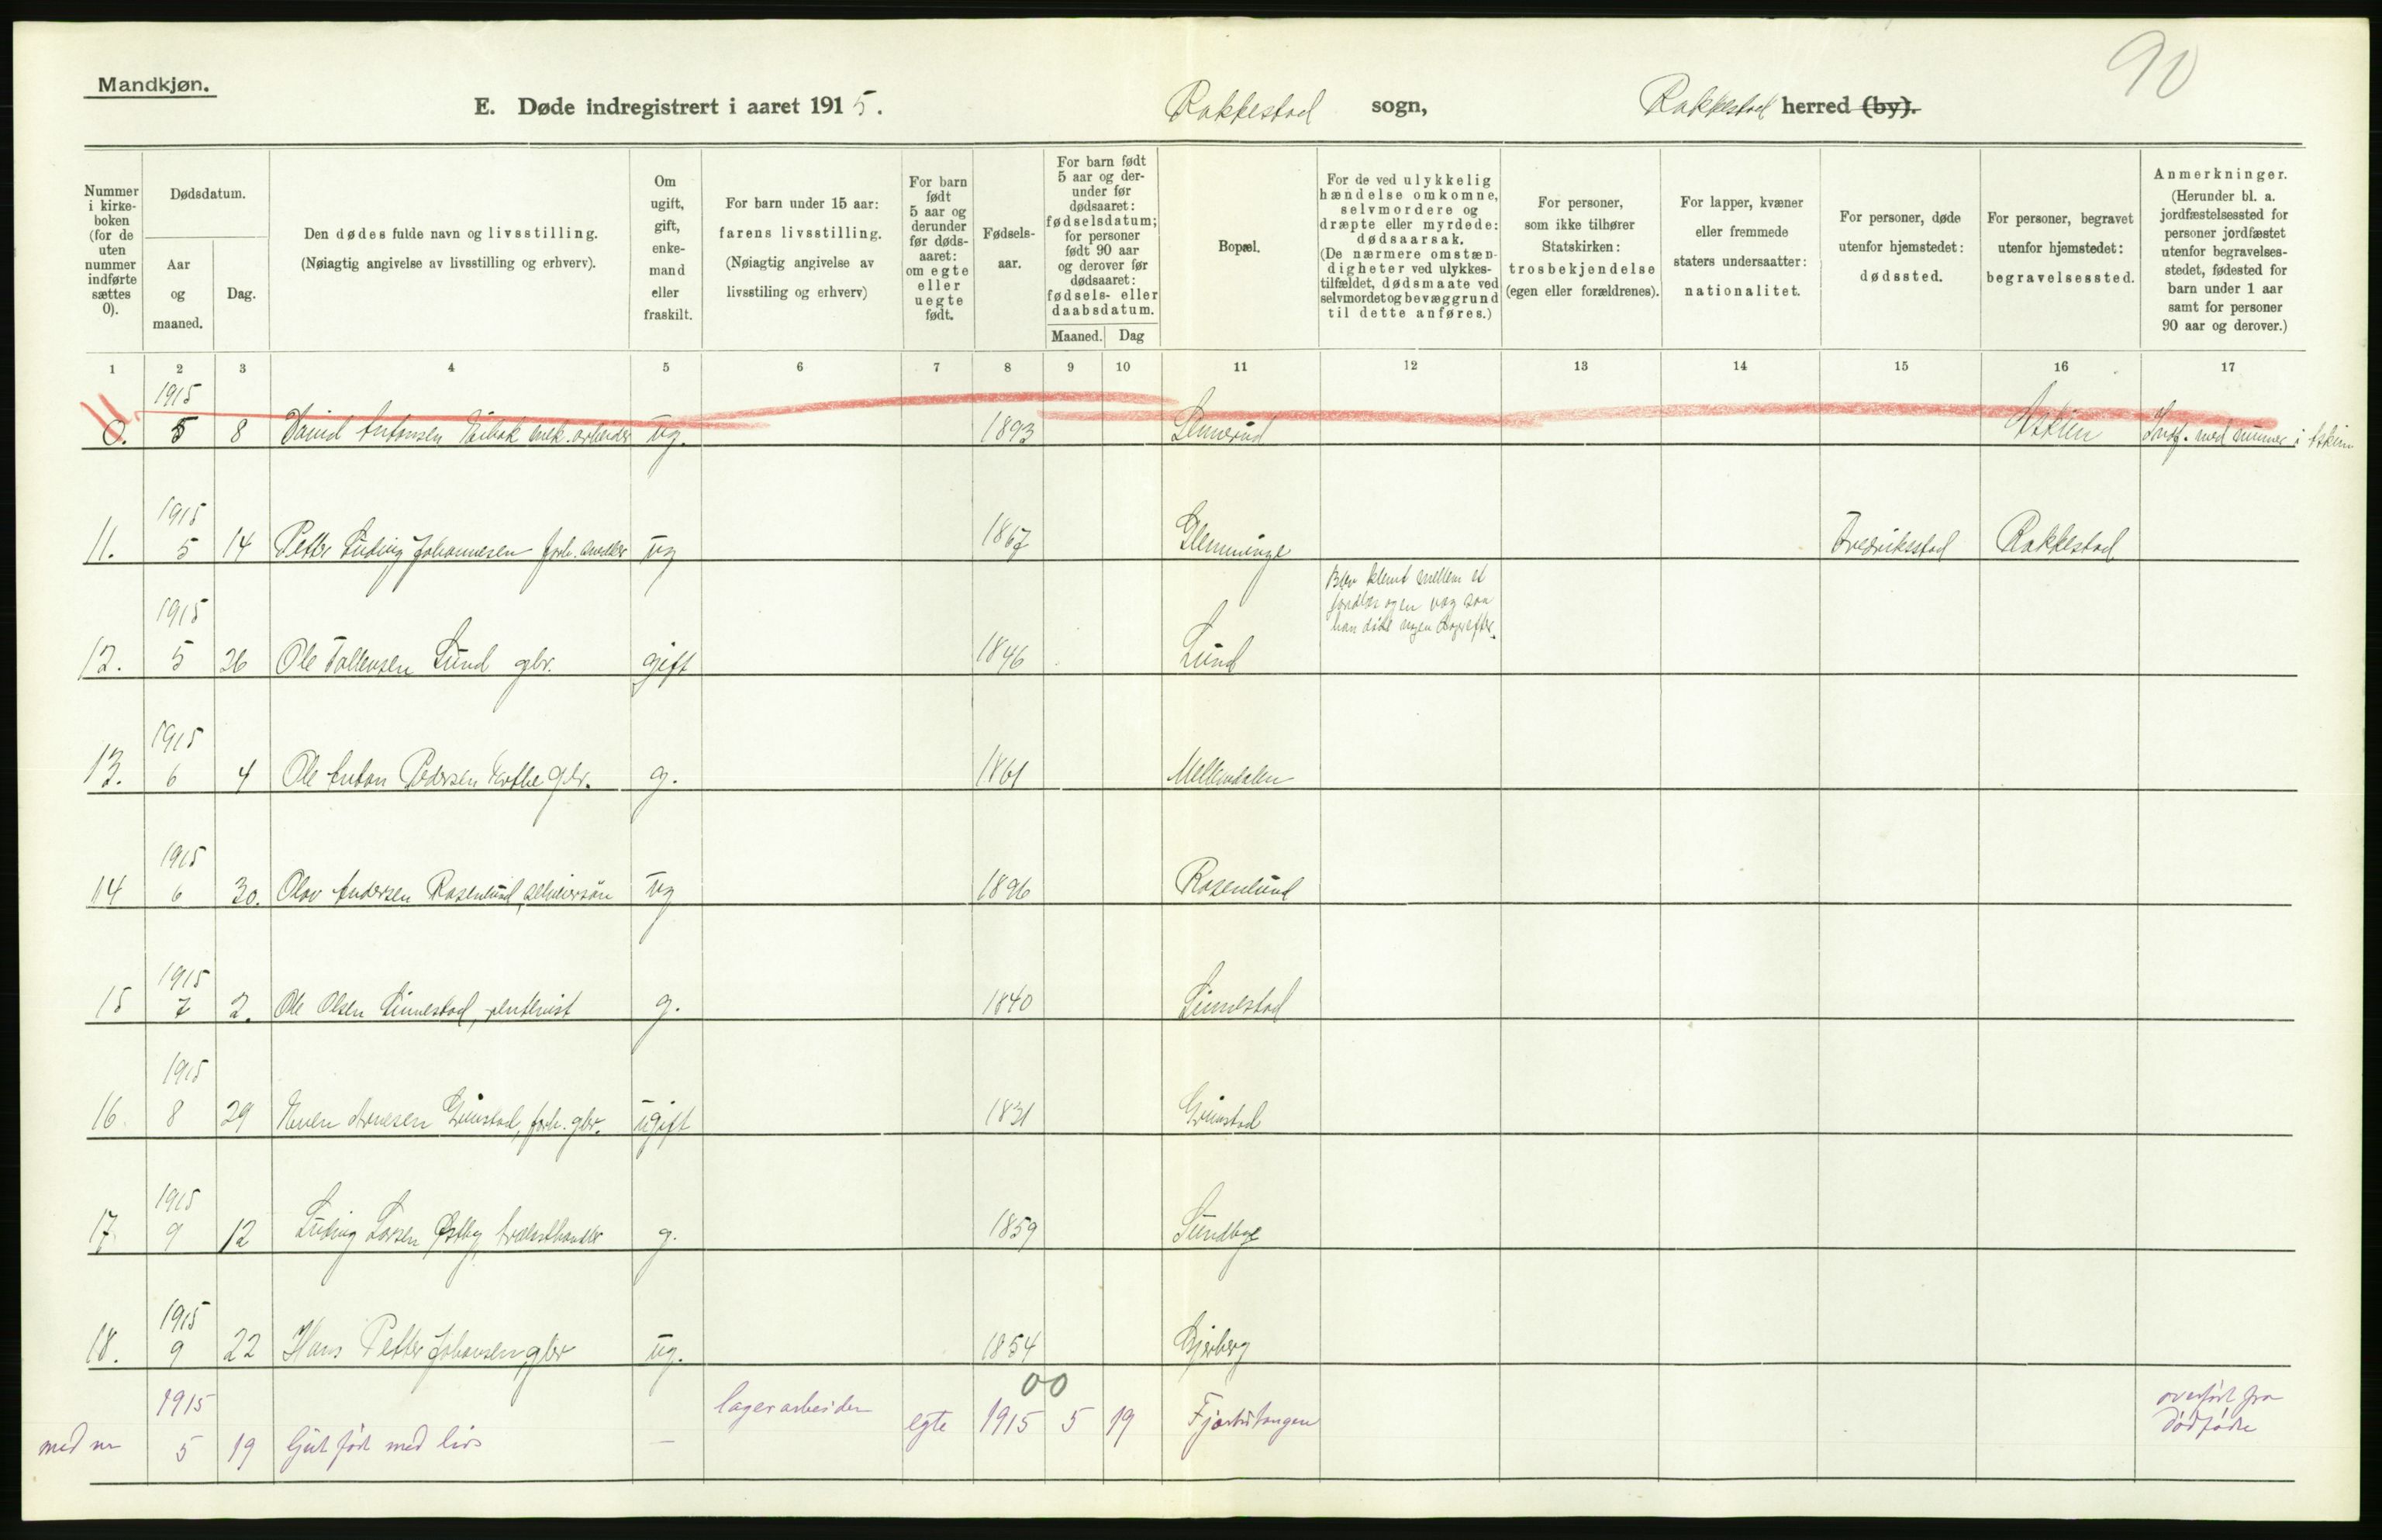 90
Mandkjøn.
E. Døde indregistrert i aaret 1915. Rakkestad sogn, Rakkestad herred (by).
Nummer i kirke-boken (for de uten nummer indførte sættes 0).
Dødsdatum.
Aar og maaned.
Dag.
Den dødes fulde navn og livsstilling.
(Nøiagtig angivelse av livsstilling og erhverv).
Om ugift, gift, enke-mand eller fraskilt.
For barn under 15 aar: farens livsstilling.
(Nøiagtig angivelse av livsstiling og erhverv)
For barn født 5 aar og derunder før døds-aaret: om egte eller uegte født.
Fødsels-aar.
For barn født 5 aar og der-under før dødsaaret: fødselsdatum; for personer født 90 aar og derover før dødsaaret: fødsels- eller daabsdatum.
Maaned. Dag
Bopæl.
For de ved ulykkelig hændelse omkomne, selvmordere og dræpte eller myrdede: dødsaarsak.
(De nærmere omstæn-digheter ved ulykkes-tilfældet, dødsmaate ved selvmordet og bevæggrund til dette anføres.)
For personer, som ikke tilhører Statskirken: trosbekjendelse (egen eller forældrenes).
For lapper, kvæner eller fremmede staters undersaatter: nationalitet.
For personer, døde utenfor hjemstedet: dødssted.
For personer, begravet utenfor hjemstedet: begravelsessted.
Anmerkninger.
(Herunder bl. a. jordfæstelsessted for personer jordfæstet utenfor begravelses-stedet, fødested for barn under 1 aar samt for personer 90 aar og derover.)
1 2 3 4 5 6 7 8 9 10 11 12 13 14 15 16 17
0. 1915 5 8 David Antonsen mek. arbeider ug. 1893 Askim Indf. med nummer i Askim
11. 1915 5 14 Petter Ludvig Johannesen forh. snedker ug 1867 Glemminge Fredriksstad Rakkestad
Blev klemt mellem et
og en væg saa
han døde nogen dage efter.
12. 1915 5 26 Ole Tollevsen Lund gbr. gift 1846 Lund
13. 1915 6 4 Ole Anton Pedersen gbr. g. 1861
14 1915 6 30. Olav Andersen Rosenlund, ug 1896 Rosenlund
15 1915 7 2. Ole Olsen rentenist g. 1840
16. 1915 8 29 Grimstad, forh. gbr. ugift 1831 Grimstad
17 1915 9 12 Ludvig Larsen Østby, trælasthandler g. 1859 Sundbye
18. 1915 9 22 Hans Petter Johansen, gbr ug. 1854 Bjerberg
00
med nr 1915 5 19 Gut født med liv – lagerarbeider egte 1915 5 19 overført fra
dødfødte